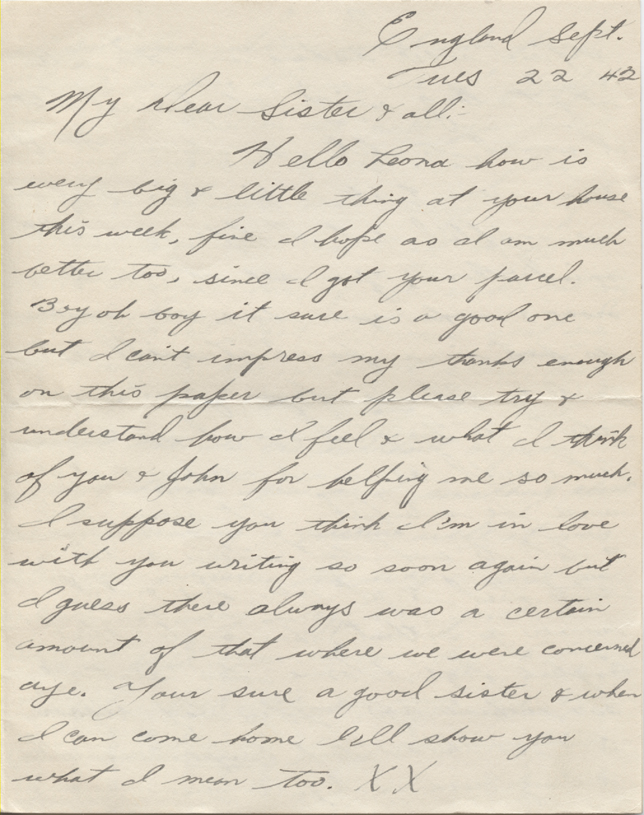 England Sept.
Tues 22 42
My Dear Sister & all:-
Hello Leona how is
every big & little thing at your house
this week, fine I hope as I am much
better too, since I got your parcel.
Boy oh boy it sure is a good one
but I can't impress my thanks enough
on this paper but please try &
understand how I feel & what I think
of you & John for helping me so much.
I suppose you think I'm in love
with you writing so soon again but
I guess there always was a certain
amount of that where we were concerned
aye. Your sure a good sister & when
I can come home I'll show you
what I mean too. X X